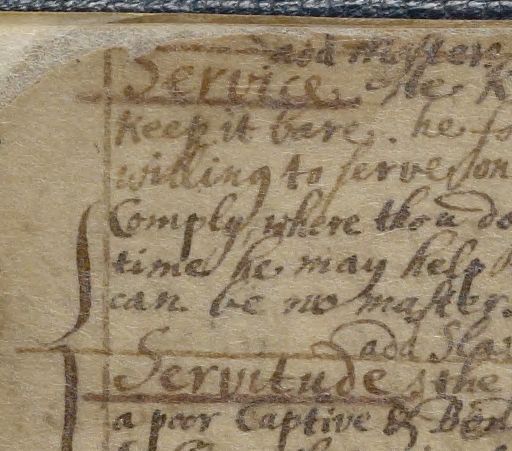 add Master
Service. He k
keep it bare. he is
willing to serve on
Comply where thou do
time he may help
can be no master.
add Slav
Servitude, the
a poor Captive & Bon